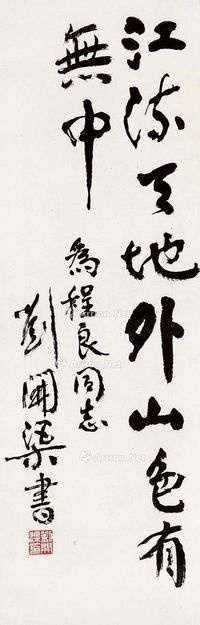 江流天地外山色有
無中
為程良同志
劉開渠書